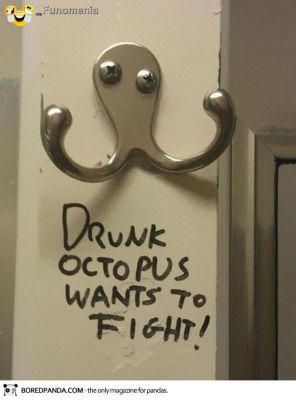 via Funomenia
DRUNK
OCTOPUS
WANTS TO
FIGHT!
BOREDPANDA.COM - the only magazine for pandas.